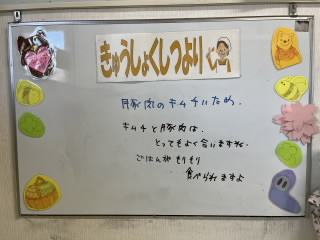 きゅうしょくしつより
豚肉のキムチいため。
キムチと豚肉は、
とってもよく合いますね。
ごはんがもりもり
食べられますよ